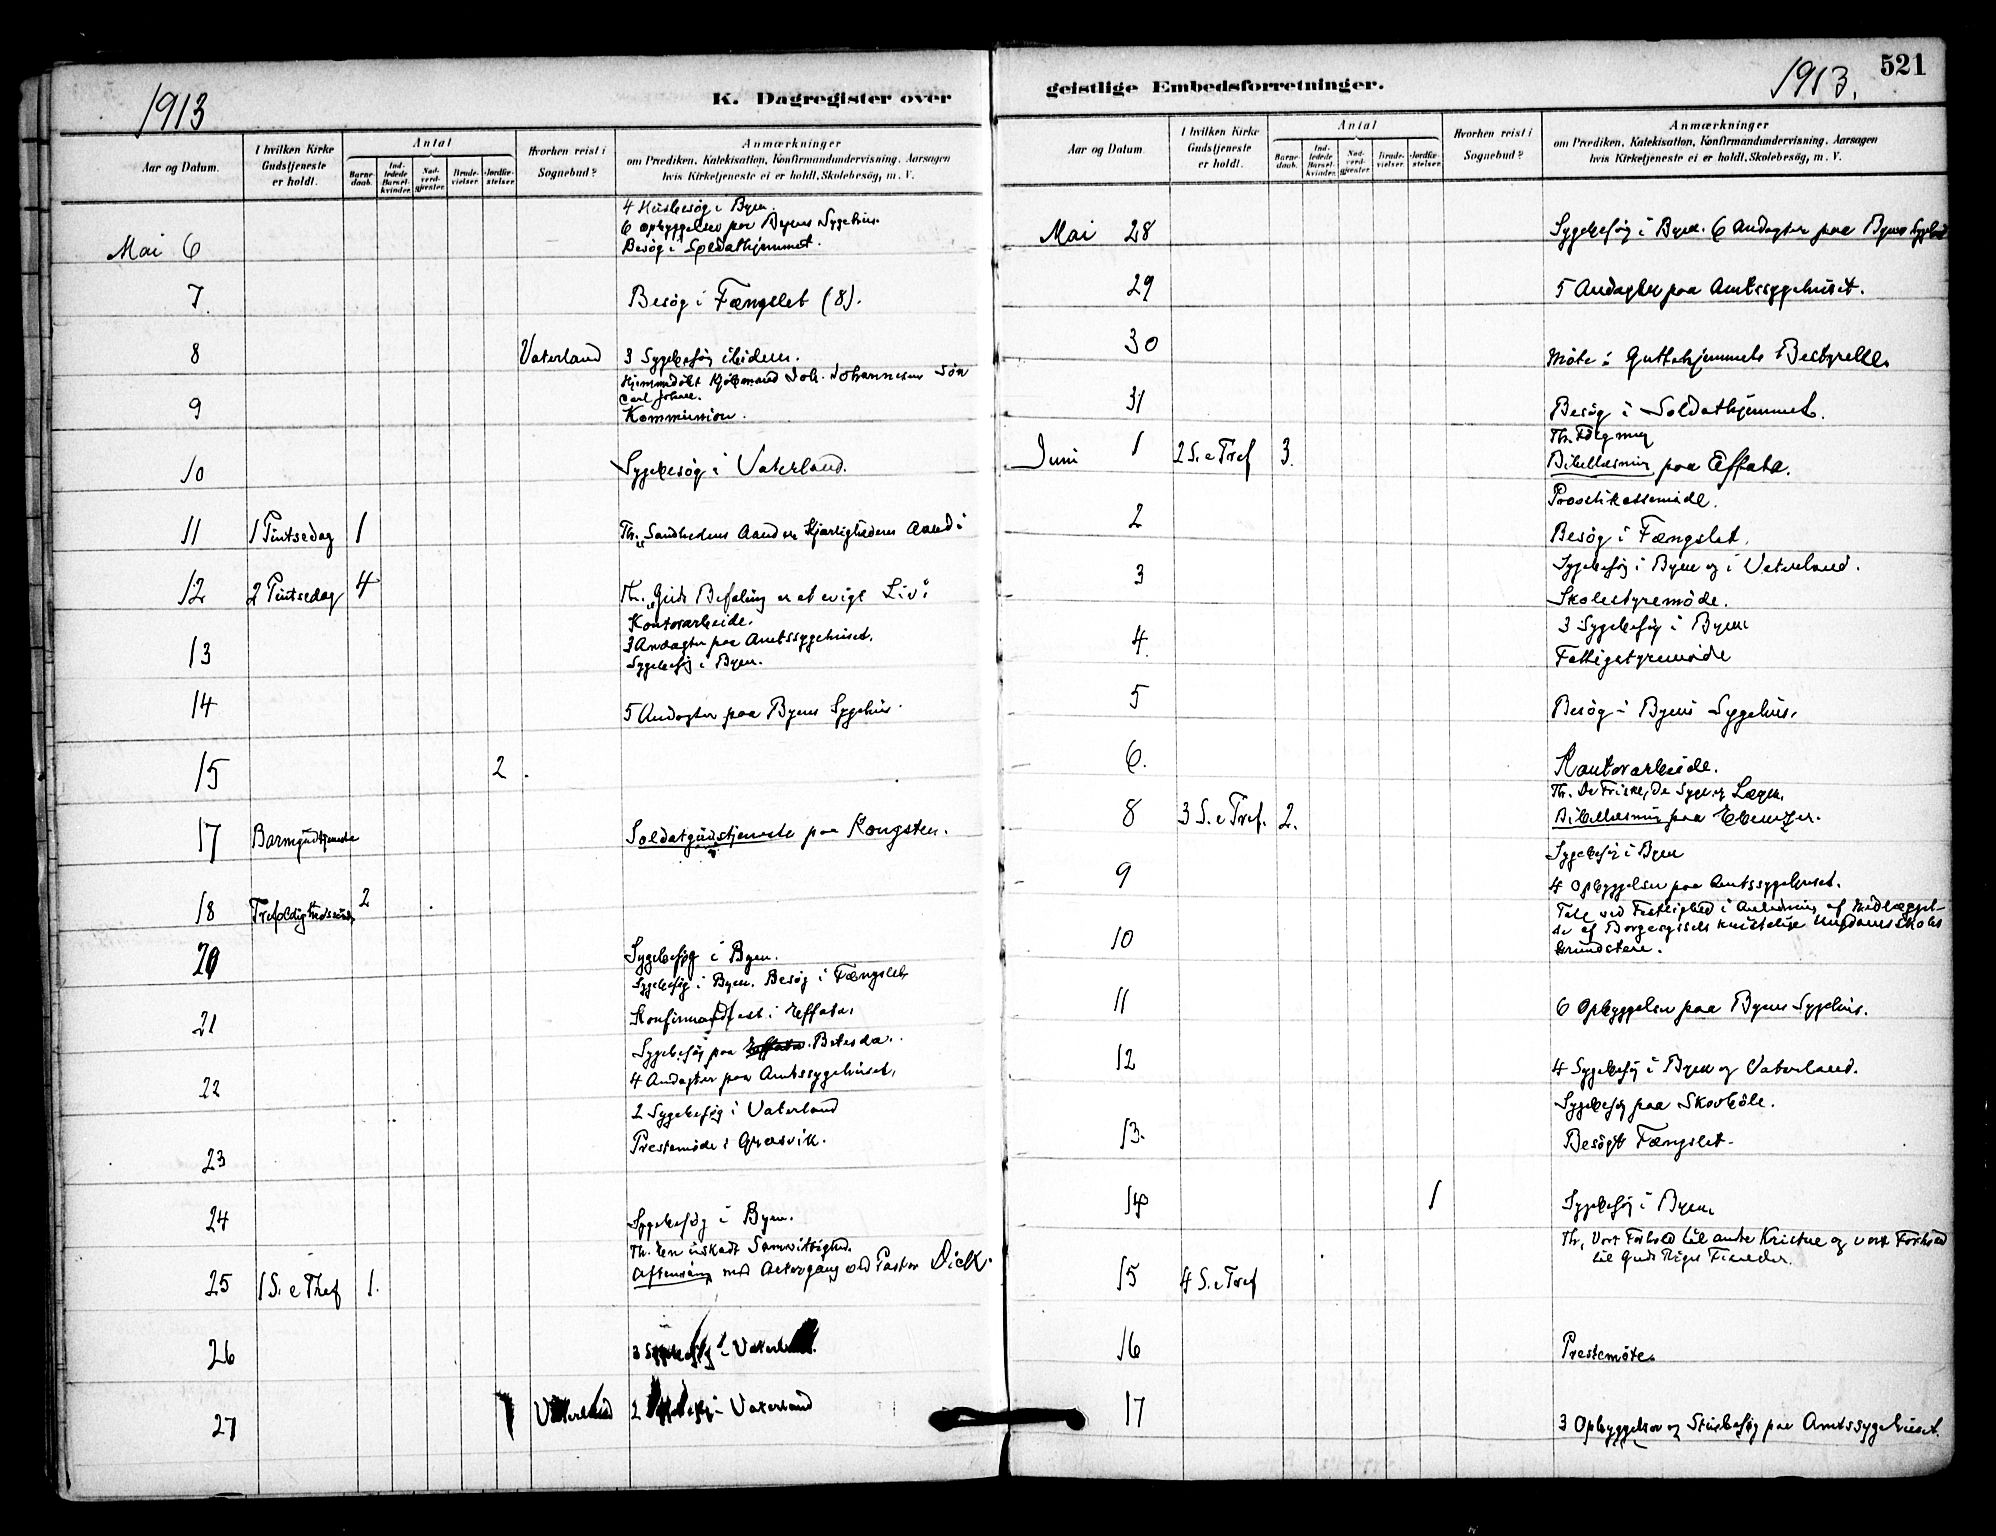 1913
K. Dagregister over
Aar og Datum.
I hvilken Kirke Gudstjeneste er holdt.
Antal
Barnedaab.
Indledede Barselkvinder.
Nadverdgjester.
Brudevielser.
Jordfæstelser.
Hvorhen reist i Sognebud?
Anmærkninger
om Prædiken, Katekisation, Konfirmandundervisning, Aarsagen
hvis Kirketjeneste ei er holdt, Skolebesøg, m. V.
4 Husbesøg i Byen.
6 Opbyggelser paa Byens Sygehus.
Mai 6 Besøg i Soldathjemmet.
7. Besøg i Fængslet (8).
8 Vaterland 3 Sygebesøg ibidem.
Hjemmedøbt Joh. Johannesens Søn
Carl Johan.
9 Kommunion.
10 Sygebesøg i Vaterland.
11 1 Pintsedag 1 Th. "Sandhedens Aand er Kjærlighedens Aand"
12 2 Pintsedag 4 Th. "Guds Befaling er et evigt Liv"
Kontorarbeide.
3 Andagter paa Amtssygehuset.
13 Sygebesøg i Byen.
14 5 Andagter paa Byens Sygehus.
15 2
17 Soldatgudstjeneste paa Kongsten.
18 Trefoldighedssønd. 2
20 Sygebesøg i Byen.
Sygebesøg i Byen. Besøg i Fængslet
21 Konfirmandfest i Effata.
Sygebesøg paa Effata. Betesda.
22 4 Andagter paa Amtssygehuset.
2 Sygebesøg i Vaterland
23 Prestemøde i Græsvik.
24 Sygebesøg i Byen.
Th. Den uskadt Samvittighed.
25 1 S. e Tref 1. Aftensang med Altergang ved Pastor Dick.
26 3 Sygebesøg i Vaterland.
27 1 Vaterland 2 Sygebesøg i Vaterland
521
1913.
geistlige Embedsforretninger.
Aar og Datum
I hvilken Kirke Gudstjeneste er holdt.
Antal
Barnedaab.
Indledede Barselkvinder.
Nadverdgjester.
Brudevielser.
Jordfæstelser.
Hvorhen reist i Sognebud?
Anmærkninger
om Prædiken, Katekisation, Konfirmandundervisning, Aarsagen
hvis Kirketjeneste ei er holdt, Skolebesøg, m. V.
Mai 28 Sygebesøg i Byen. 6 Andagter paa Byens Sygehus
29 5 Andagter paa Amtssygehuset.
30 Møte i Guttehjemmets Bestyrelse.
31 Besøg i Soldathjemmet.
Juni 1 2 S. e Tref 3. Bibellæsning paa Effata.
2 Besøg i Fængslet.
Sygebesøg i Byen og i Vaterland.
3 Skolestyremøde.
3 Sygebesøg i Byen
4. Fattigstyremøde
5 Besøg i Byens Sygehus.
6. Kontorarbeide.
Th. De Friske, De Syge og Lægen.
8 3 S. e Tref. 2. Bibellæsning paa Ebenezer.
Sygebesøg i Byen
9 4 Opbyggelser paa Amtssygehuset.
Tale ved Festlighed i Anledning af Nedlæggel-
10 se af Borgesyssels kristelige Ungdomsskoles
Grundsten.
11 6 Opbyggelser paa Byens Sygehus.
12 4 Sygebesøg i Byen og Vaterland.
Sygebesøg paa
13. Besøgt Fængslet.
14 1 Sygebesøg i Byen.
Th. Vort Forhold til andre Kristne og vort Forhold
til Guds Riges Fiender.
15 4 S. e Tref
16 Prestemøte.
17 3 Opbyggelser og paa Amtssygehuset.